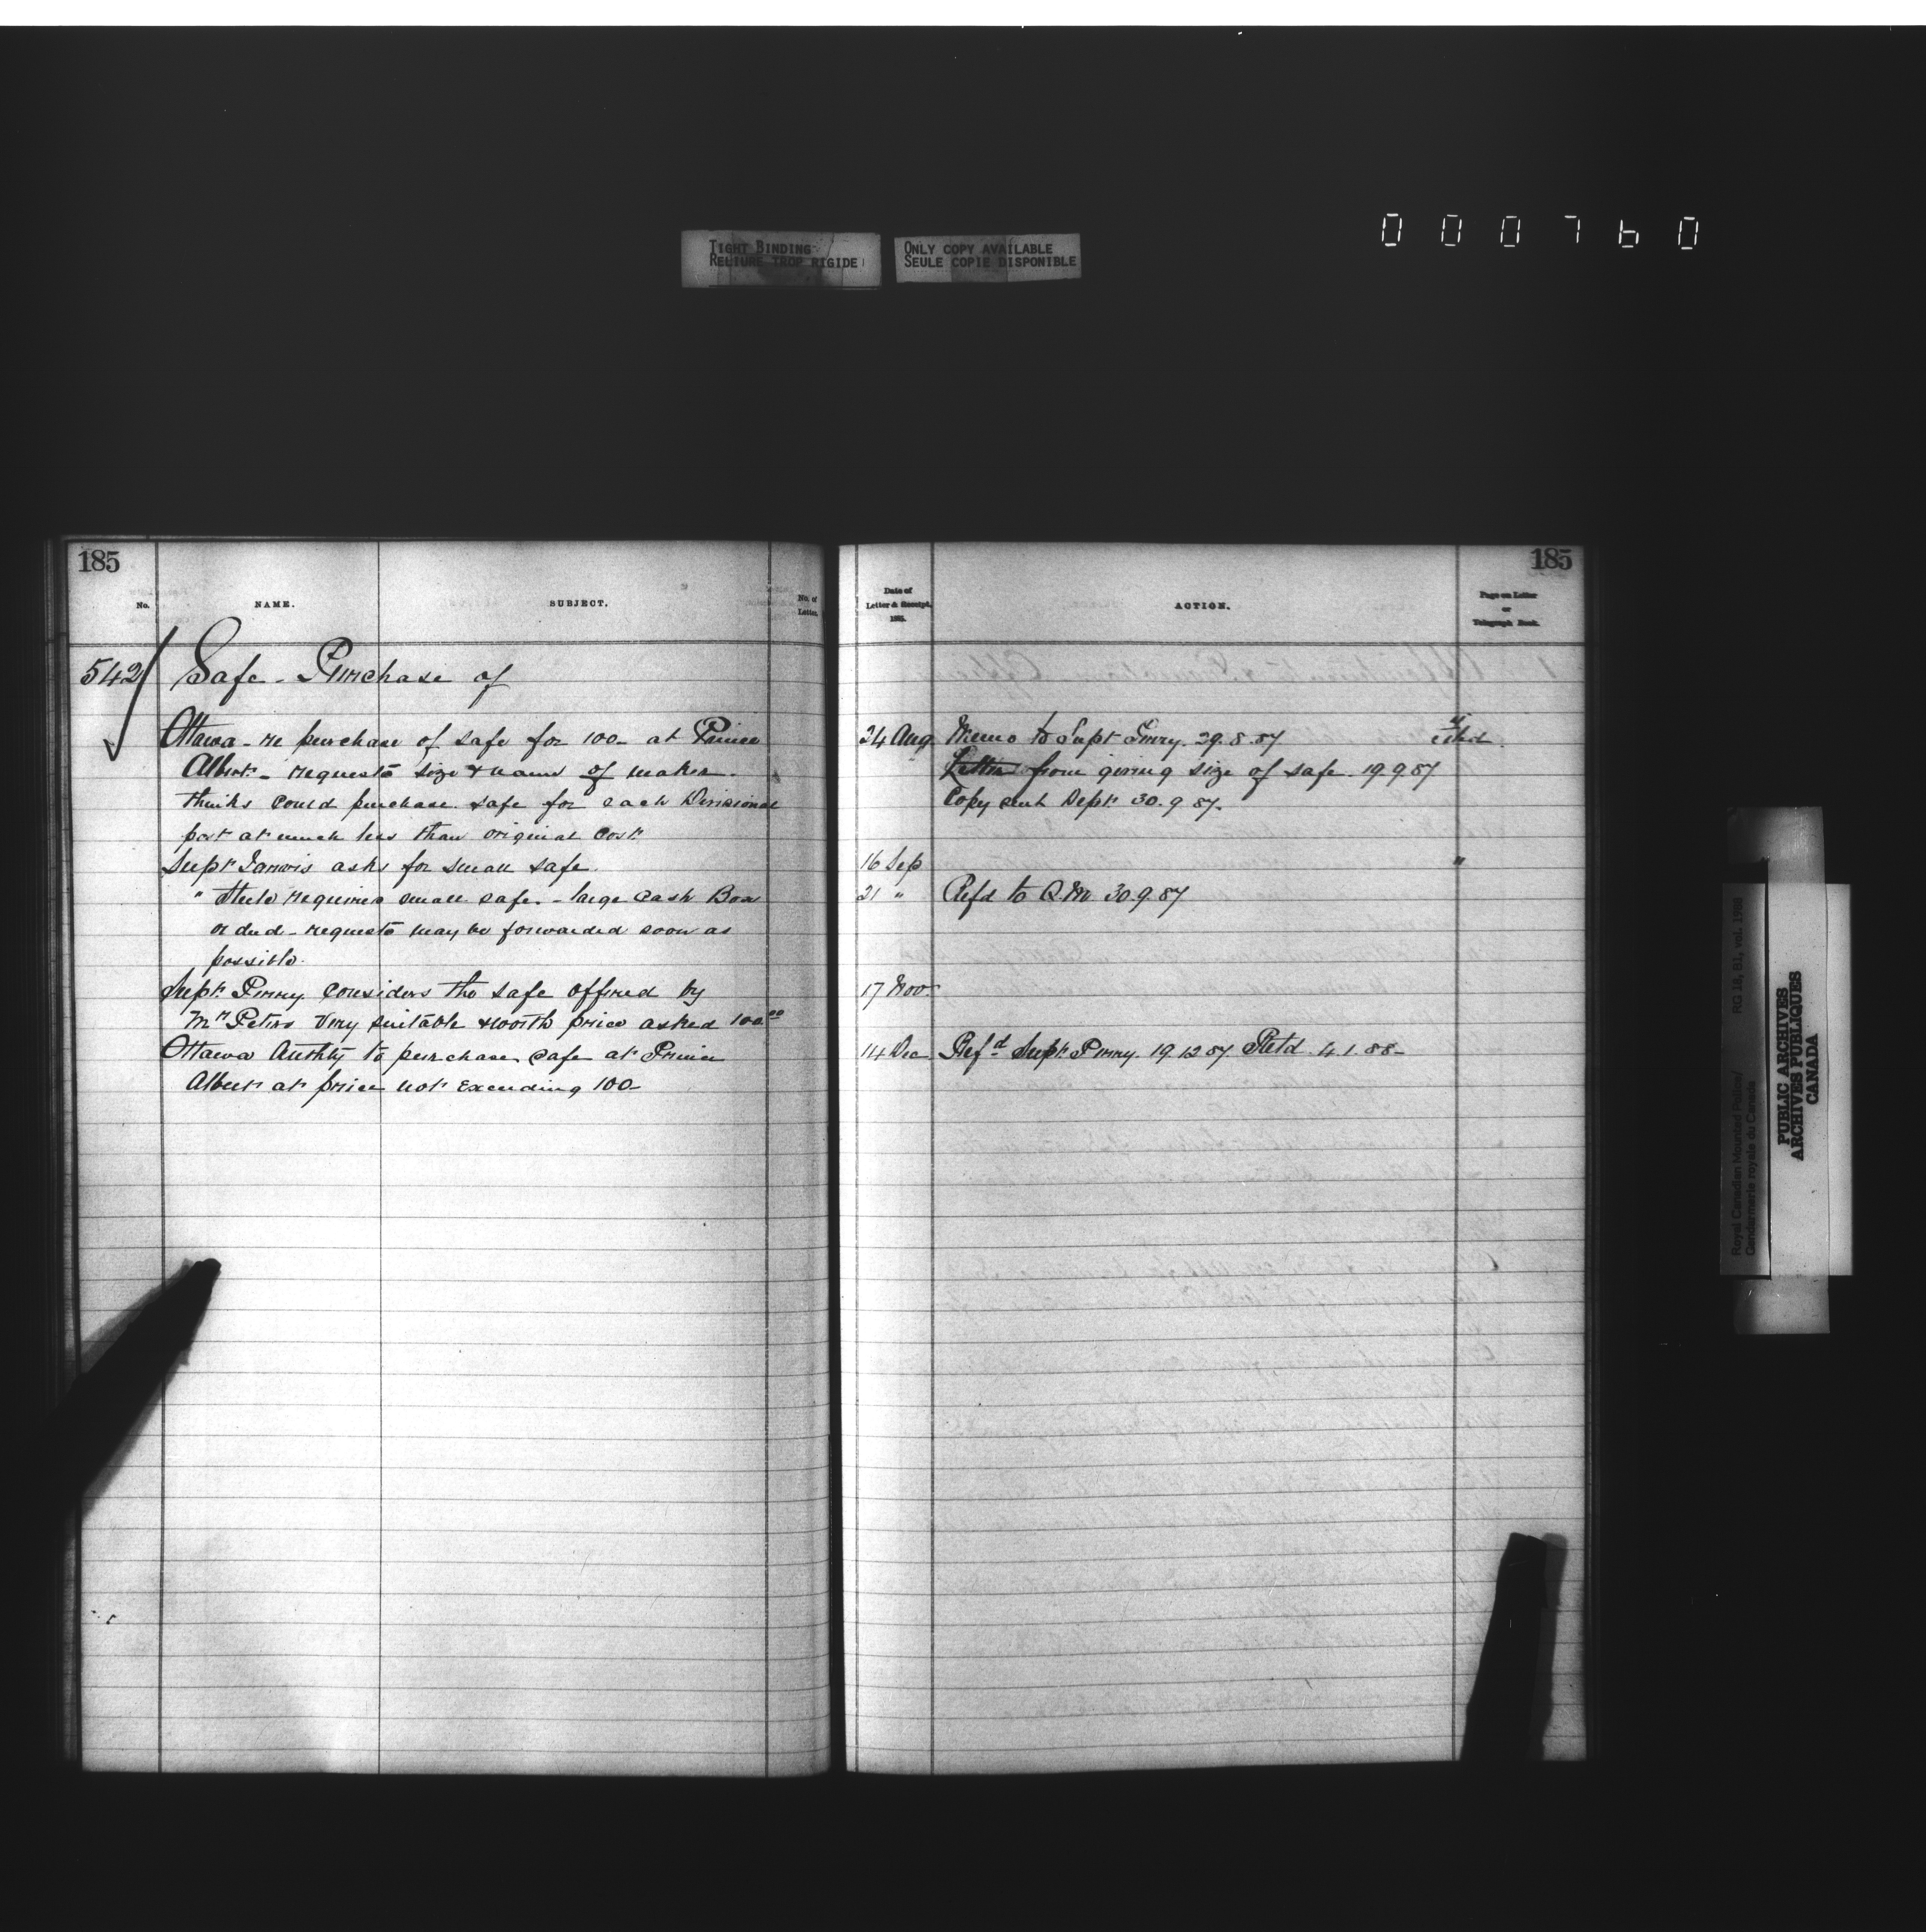 000760
TIGHT BINDING
RELIURE TROP RIGIDE
ONLY COPY AVAILABLE
SEULE COPIE DISPONIBLE
185
No.
NAME.
SUBJECT.
No. of
Letter.
542
Safe - Purchase of
Ottawa - re purchase of safe for 100- at Prince
Albert - requests size & name of maker.
thinks could purchase safe for each Divisional
post at much less than original cost
Supt Jarvis asks for small safe.
" Steele requires small safe - large Cash Box
requests may be forwarded soon as
possible.
Supt. Perry considers the safe offered by
Mr Peters very suitable & worth price asked 100.00
Ottawa Authty to purchase safe at Prince
Albert at price not exceeding 100-
185
Date of
Letter & Receipt,
188
ACTION.
Page on Letter
or
Telegraph Book.
24 Aug Memo to Supt Perry. 29.8.87
Letter from giving size of safe. 19.9.87
Copy sent Dept. 30.9.87.
16 Sep "
21 " Refd to Q.M. 30.9.87
17 Nov.
14 Dec Refd Supt. Perry. 19.12.87 Retd. 4.1.88-
Royal Canadian Mounted Police/ RG 18, B1, vol. 1986
Gendarmerie royale du Canada
PUBLIC ARCHIVES
ARCHIVES PUBLIQUES
CANADA